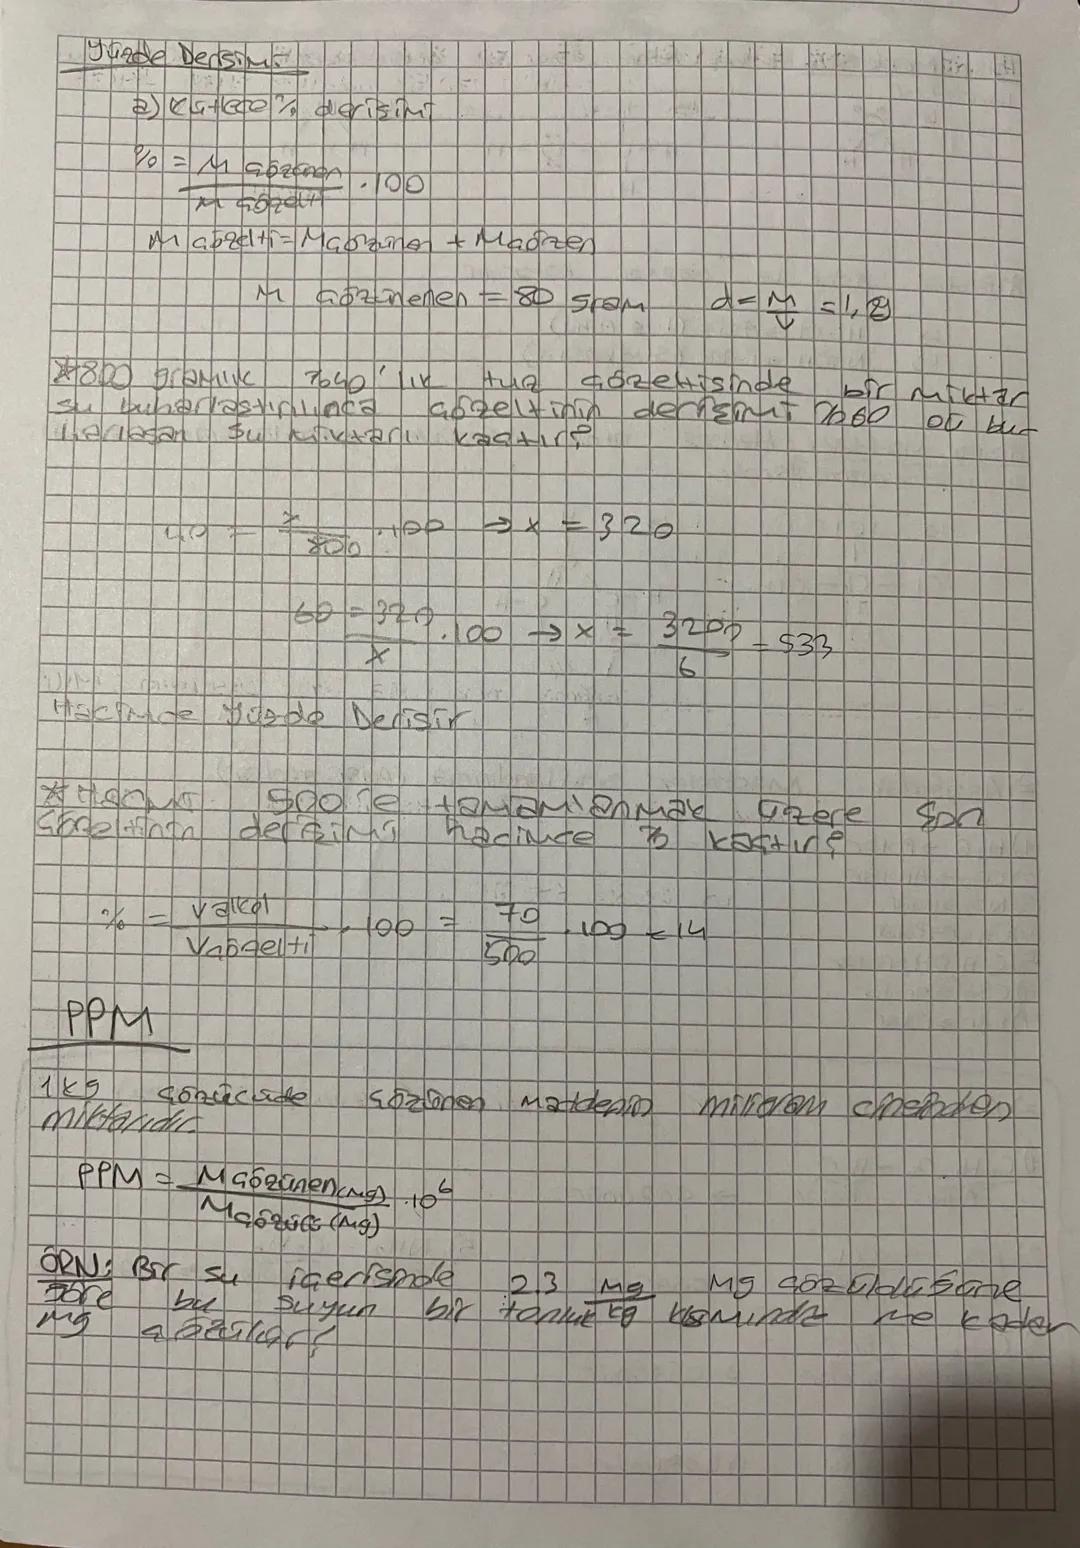 Yüzde Derişim:
a) Kütlece % derişimi
% = M çözünen / M çözelti . 100
M çözelti = Mçözünen + Mçözen
M çözünenen = 80 gram d = M/V = 1,2g
*800 gramlık %40'lık tuz çözeltisinde bir miktar
su buharlaştırılınca çözeltinin derişimi %60 oluyor
su miktarı kaçtır?
40 = x/800 . 100 → x = 320
60 = 320/x . 100 → x = 3200/6 = 533
Hacimce Yüzde Derişir
* 500 tamamlanmak üzere son
çözeltinin derişimi hacimce % kaçtır?
% = Valkol / Vçözelti . 100 = 70/500 . 100 = 14
PPM
1 kg çözücüde çözünen maddenin miligram cinsinden
miktarıdır.
PPM = Mçözünen(mg) / Mçözücü(mg) . 10⁶
ÖRN: Bir su içerisinde 2,3 mg/kg Mg çözüldüğüne
göre bu suyun bir tonluk kısmında ne kadar
mg çözülür?